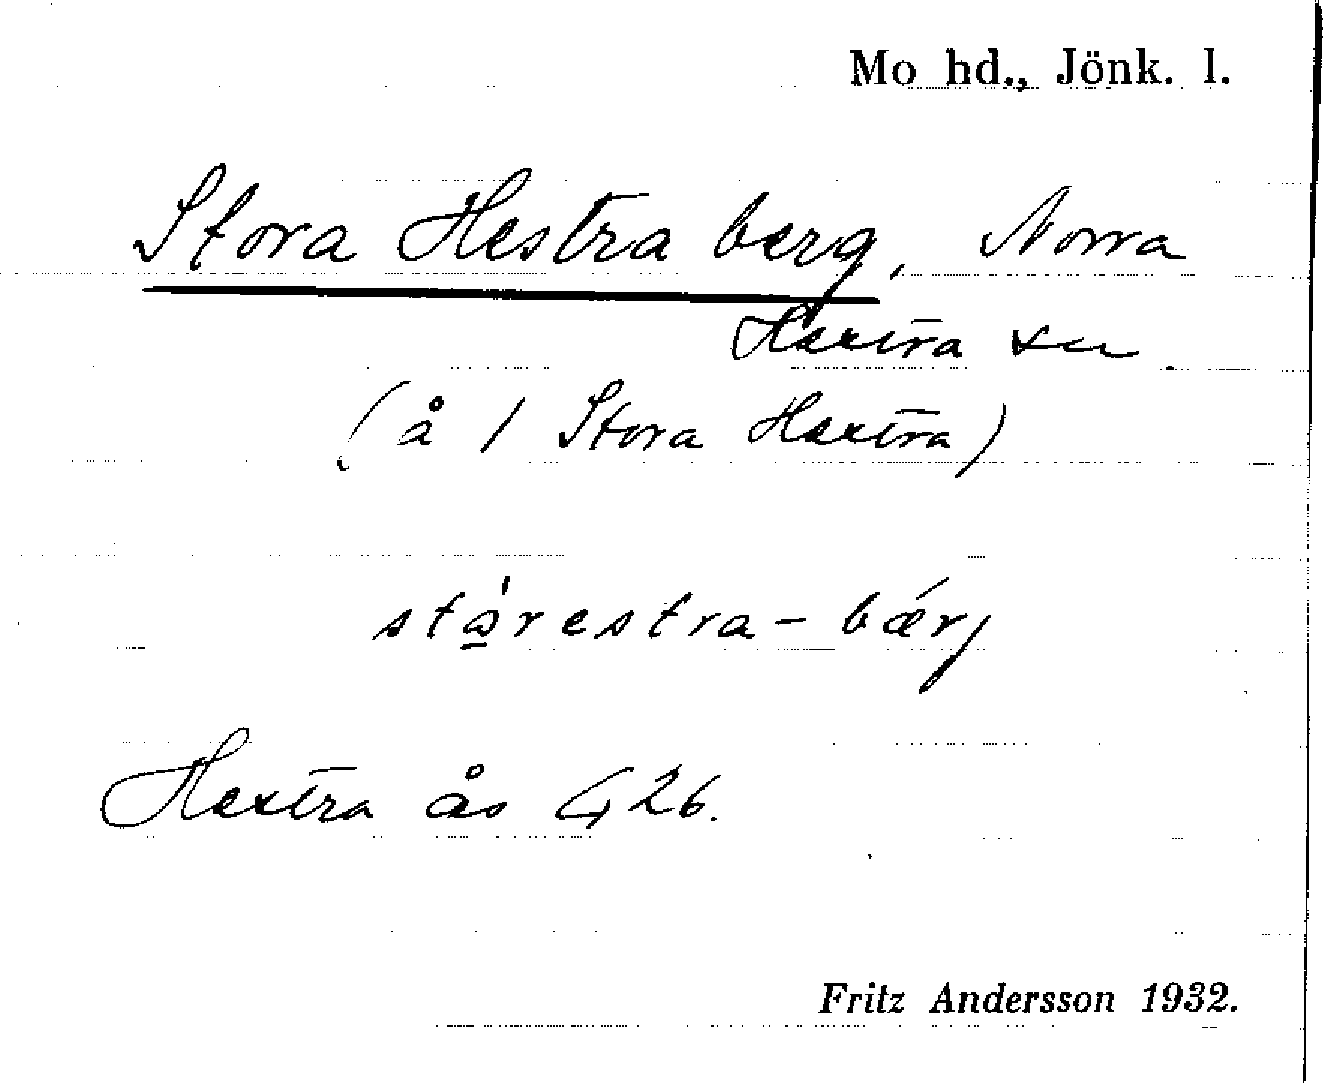 Mo hd., Jönk. l.
Stora Hestra berg, Norra
Hestra sn
(å 1 Stora Hestra)
stårestra-bærj
Hestra ås 426.
Fritz Andersson 1932.